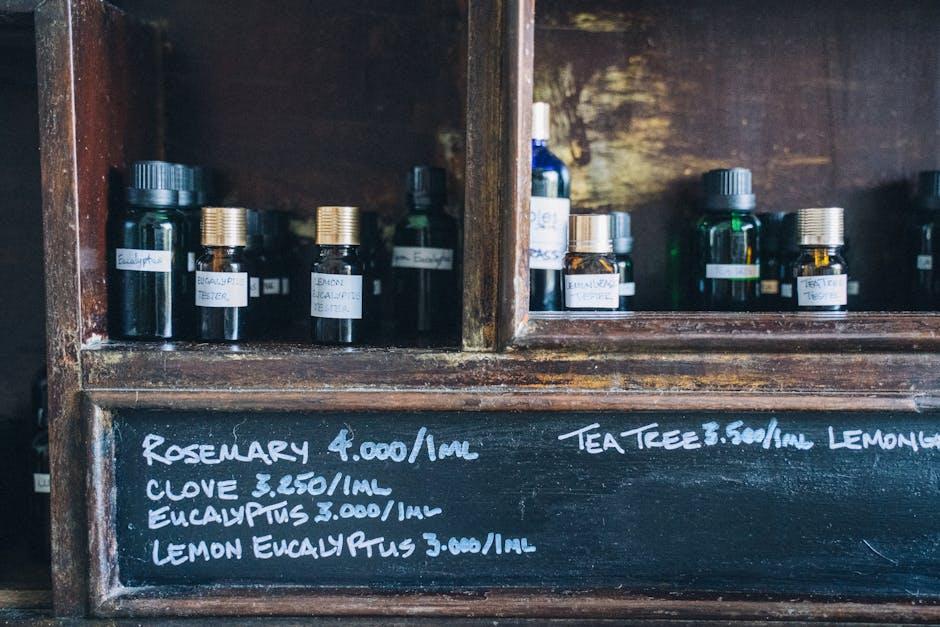 Eucalyptus
EUCALYPTUS
TESTER
LEMON
EUCALYPTUS
TESTER
Eucalyptus
RASS
LEMONGRASS
TESTER
TEA TREE
TEATREE
TESTER
ROSEMARY 4.000/1ML
CLOVE 3.250/1ML
EUCALYPTUS 3.000/1ML
LEMON EUCALYPTUS 3.000/1ML
TEA TREE 3.500/1ML LEMONG